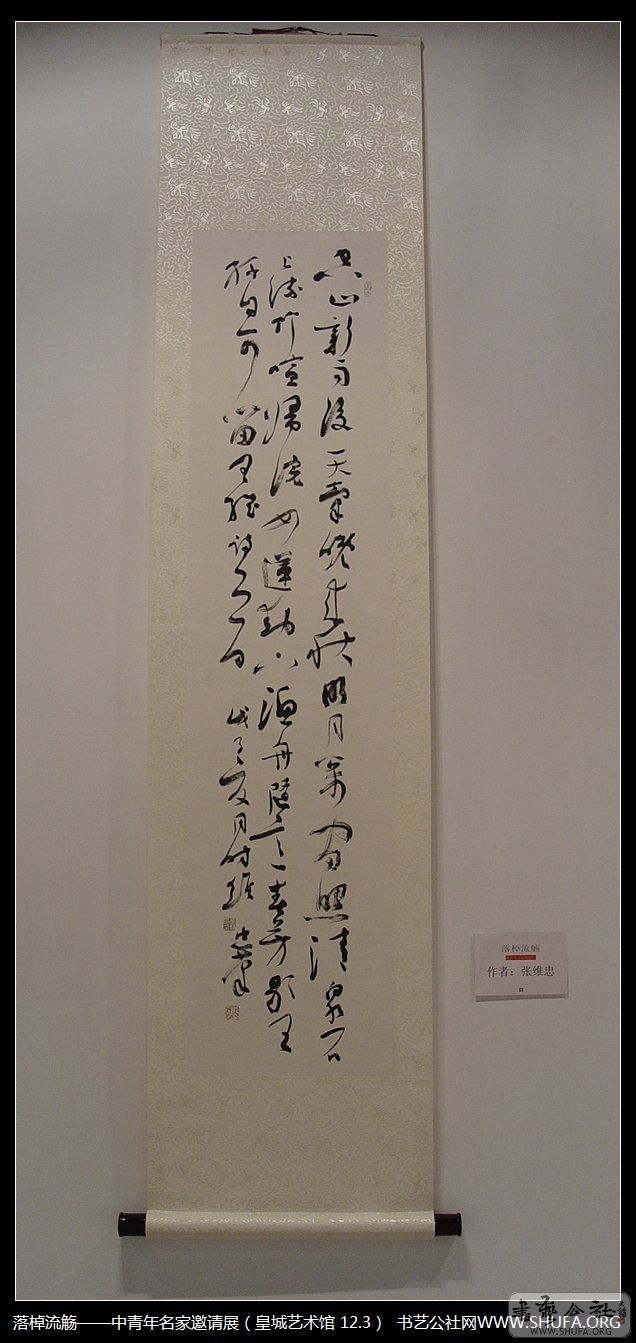 空山新雨後天氣晚來秋明月松間照清泉石
上流竹喧歸浣女蓮動下漁舟隨意春芳歇王
孫自可留王維詩一首 戊子夏月維忠
落棹流觞
作者：张维忠
書藝公社
WWW.SHUFA.ORG
落棹流觞——中青年名家邀请展（皇城艺术馆 12.3） 书艺公社网WWW.SHUFA.ORG